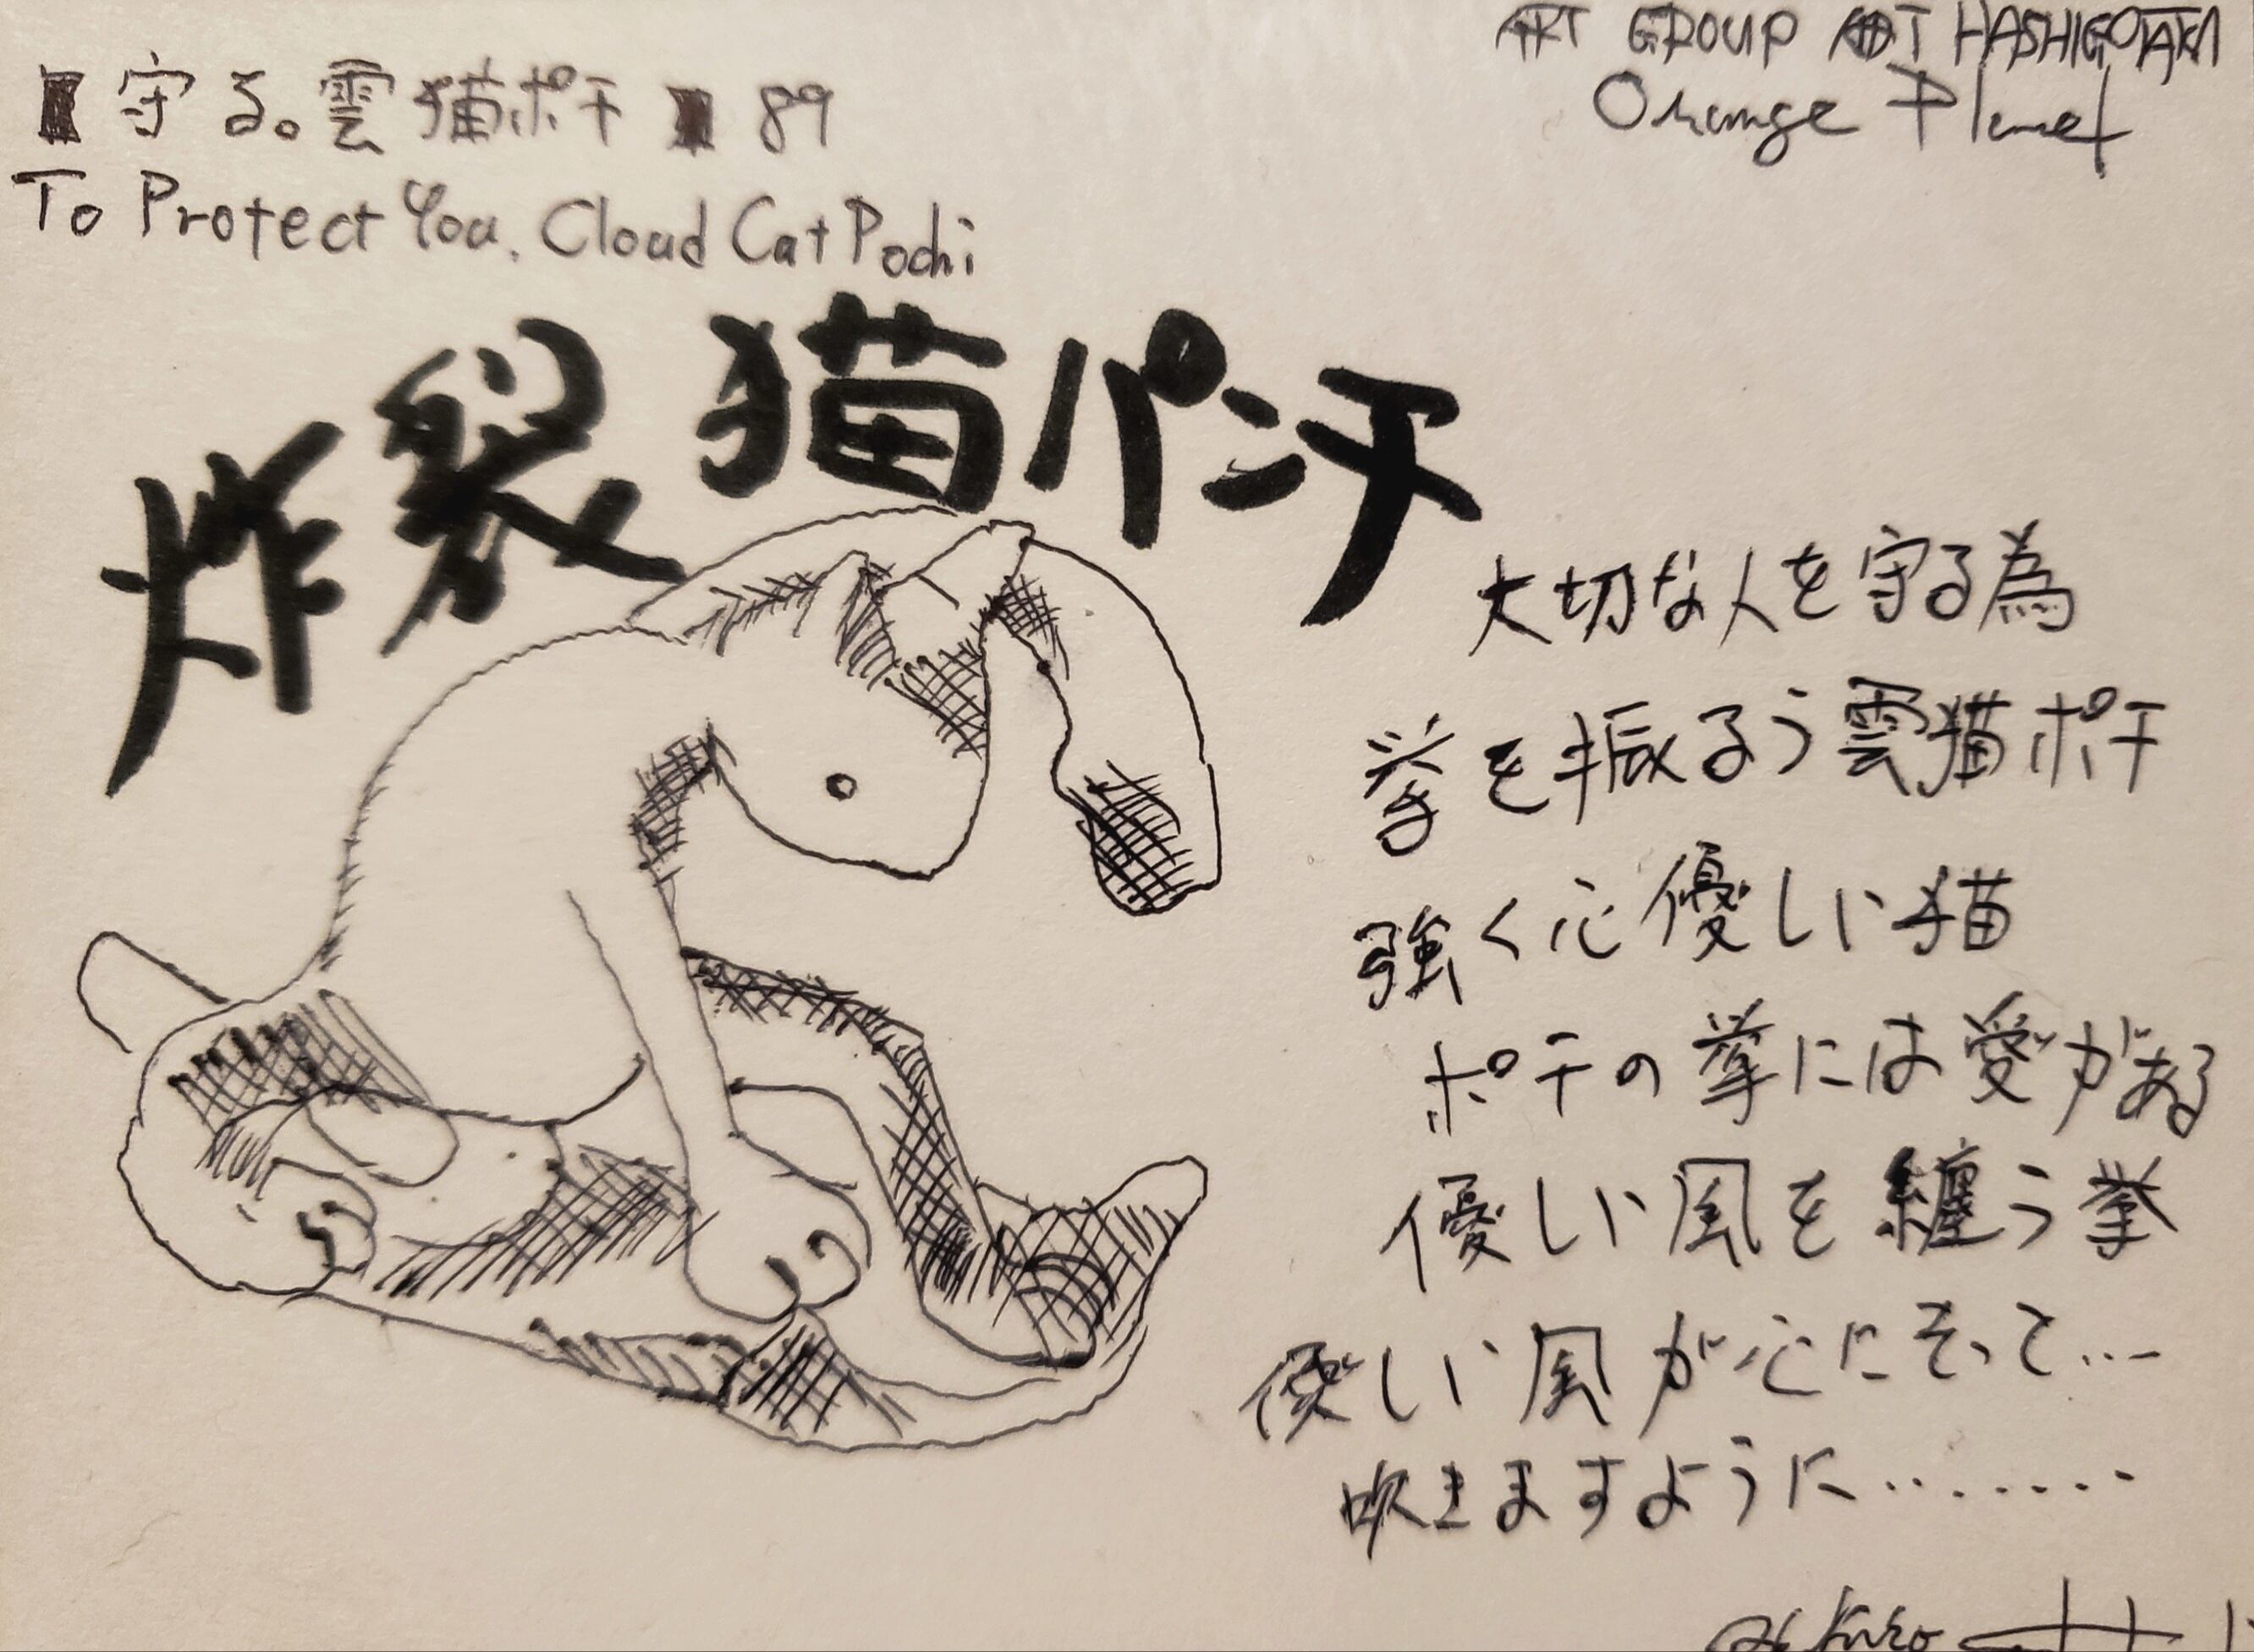 ART GROUP ART HASHIGOTAKA
Orange Planet
■守る。雲猫ポチ■89
To Protect You. Cloud Cat Pochi
炸裂猫パンチ
大切な人を守る為
拳を振るう雲猫ポチ
強く心優しい猫
ポチの拳には愛がある
優しい風を纏う拳
優しい風が心にそって…
吹きますように………